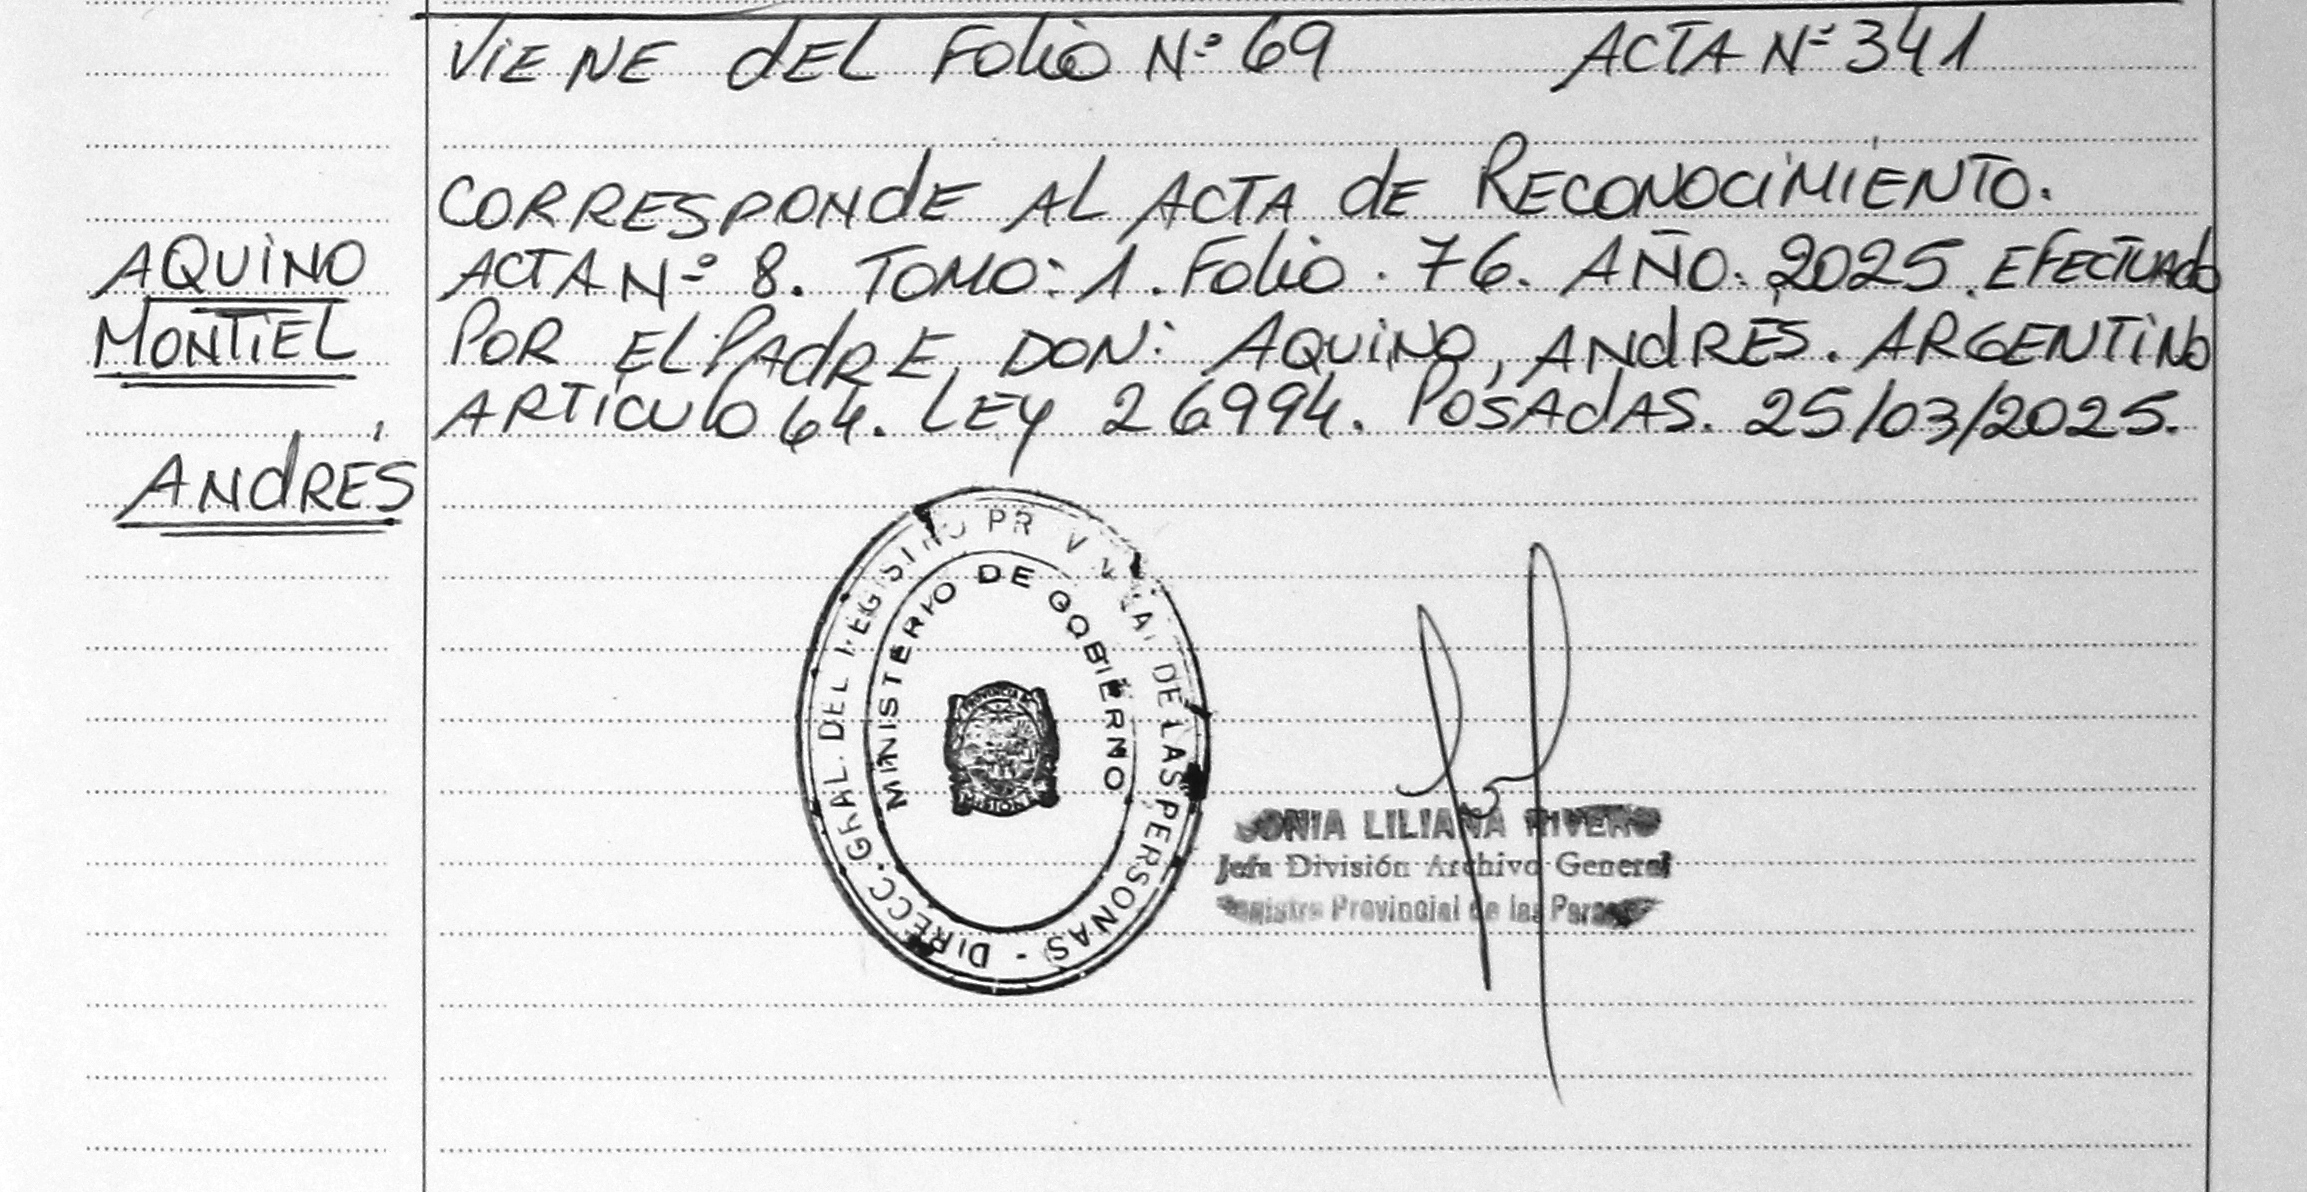 VIENE DEL FOLIO Nº 69 ACTA Nº 341
CORRESPONDE AL ACTA DE RECONOCIMIENTO.
AQUINO
MONTIEL
ANDRÉS
ACTA Nº 8. TOMO: 1. FOLIO. 76. AÑO. 2025. EFECTUADO
POR EL PADRE, DON: AQUINO, ANDRÉS. ARGENTINO
ARTÍCULO 64. LEY 26994. POSADAS. 25/03/2025.
DIRECC. GRAL. DEL REGISTRO DE LAS PERSONAS -
MINISTERIO DE GOBIERNO
SONIA LILIANA RIVERO
Jefa División Archivo General
Registro Provincial de las Personas